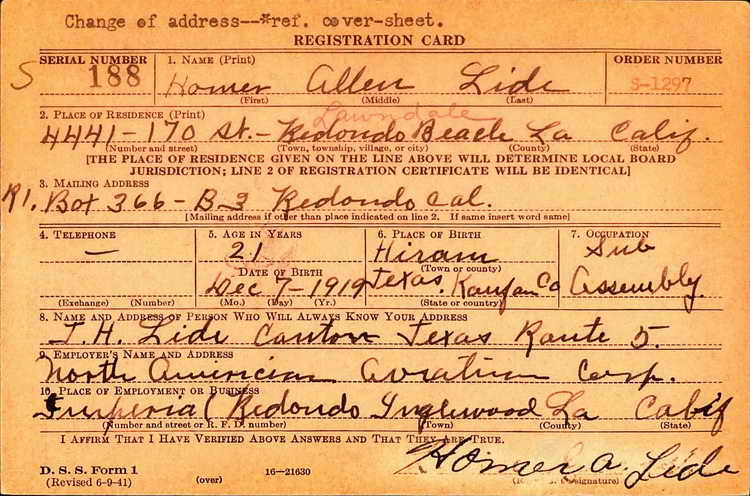 Change of address--*ref. cover-sheet.
REGISTRATION CARD
SERIAL NUMBER 1. NAME (Print) ORDER NUMBER
S 188 Homer Allen Lide S-1297
(First) (Middle) (Last)
2. PLACE OF RESIDENCE (Print) Lawndale
4441-170 St.- Redondo Beach La Calif.
(Number and street) (Town, township, village, or city) (County) (State)
[THE PLACE OF RESIDENCE GIVEN ON THE LINE ABOVE WILL DETERMINE LOCAL BOARD
JURISDICTION; LINE 2 OF REGISTRATION CERTIFICATE WILL BE IDENTICAL]
3. MAILING ADDRESS
R1. Box 366-B3 Redondo Cal.
[Mailing address if other than place indicated on line 2. If same insert word same]
4. TELEPHONE 5. AGE IN YEARS 6. PLACE OF BIRTH 7. OCCUPATION
— 21 Hiram Sub
(Town or county)
DATE OF BIRTH
Dec 7-1919 Texas. Kaufan Co Assembly
(Exchange) (Number) (Mo.) (Day) (Yr.) (State or country)
8. NAME AND ADDRESS OF PERSON WHO WILL ALWAYS KNOW YOUR ADDRESS
J.H. Lide Canton Texas Route 5.
9. EMPLOYER'S NAME AND ADDRESS
North American Aviation Corp.
10. PLACE OF EMPLOYMENT OR BUSINESS
Imperial Redondo Inglewood La Calif
(Number and street or R. F. D. number) (Town) (County) (State)
I AFFIRM THAT I HAVE VERIFIED ABOVE ANSWERS AND THAT THEY ARE TRUE.
Homer A. Lide
D. S. S. Form 1
(Revised 6-9-41) (over) 16-21630 signature)